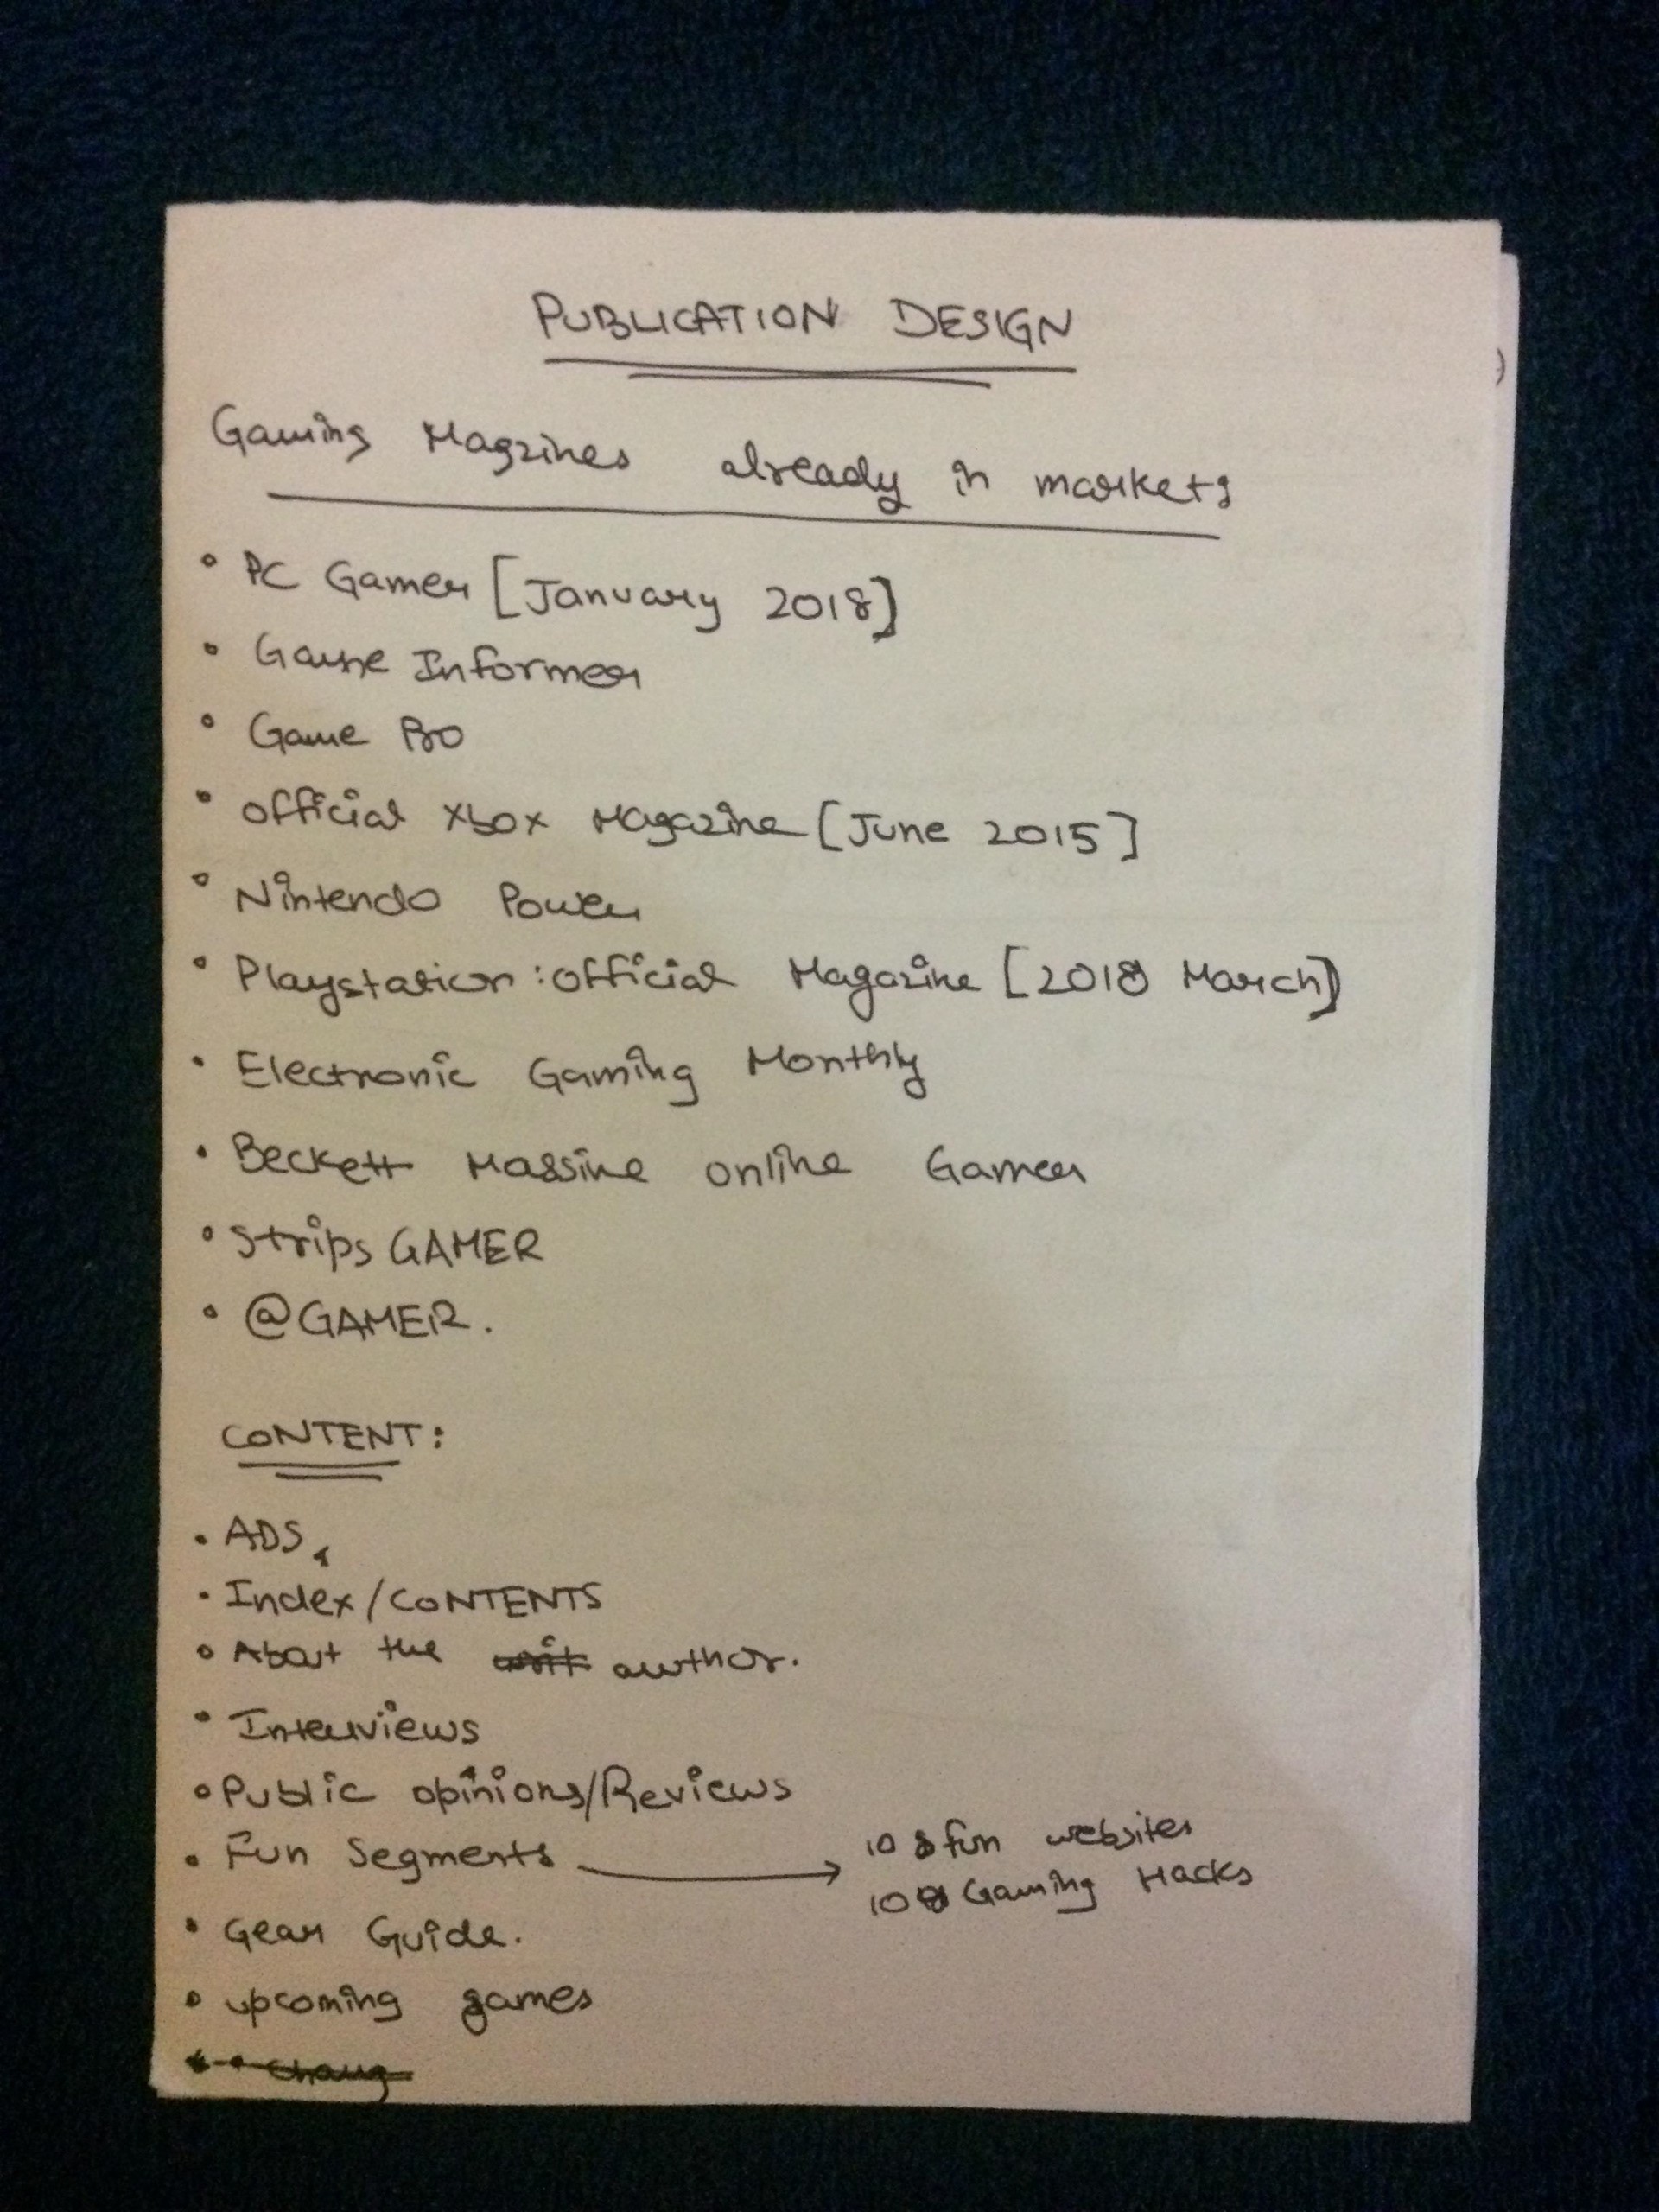 PUBLICATION DESIGN
Gaming Magzines already in markets
• PC Gamer [January 2018]
• Game Informer
• Game Pro
• Official Xbox Magazine [June 2015]
• Nintendo Power
• Playstation: Official Magazine [2018 March]
• Electronic Gaming Monthly
• Beckett Massive online Gamer
• Strips GAMER
• @GAMER.
CONTENT:
• ADS
• Index/CONTENTS
• About the author.
• Interviews
• Public opinions/Reviews
• Fun Segments → 10 fun websites
10 Gaming Hacks
• Gear Guide.
• upcoming games